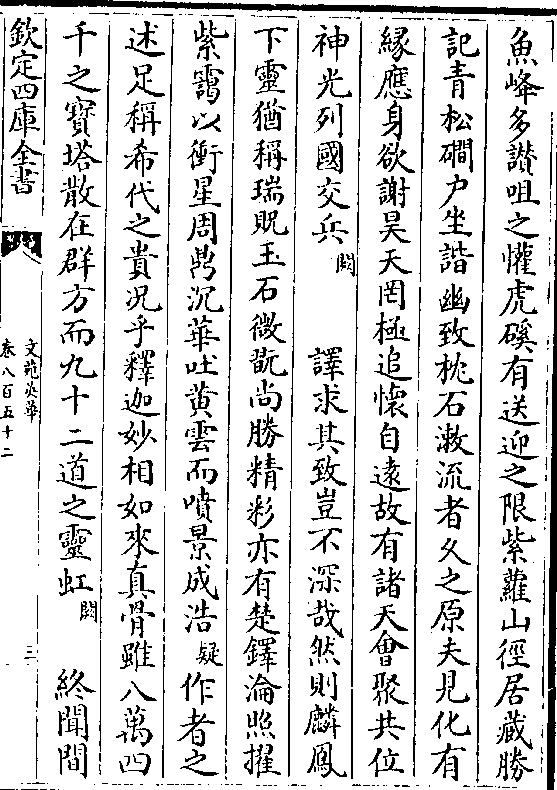 魚峰多讃咀之懽虎磎有送迎之限紫蘿山徑居藏勝
記青松磵户坐諧幽致枕石漱流者久之原夫見化有
緣應身欲謝昊天罔極追懷自遠故有諸天會聚共位
神光列國交兵闕譯求其致豈不深哉然則麟鳳
下靈猶稱瑞貺玉石微翫尚勝精彩亦有楚鐸淪照擢
紫靄以衝星周鼎沉華吐黄雲而噴景成浩疑作者之
述足稱希代之貴况乎釋迦妙相如來真骨雖八萬四
千之寶塔散在群方而九十二道之靈虹闕終聞間
欽定四庫全書
文苑英華
卷八百五十二
三